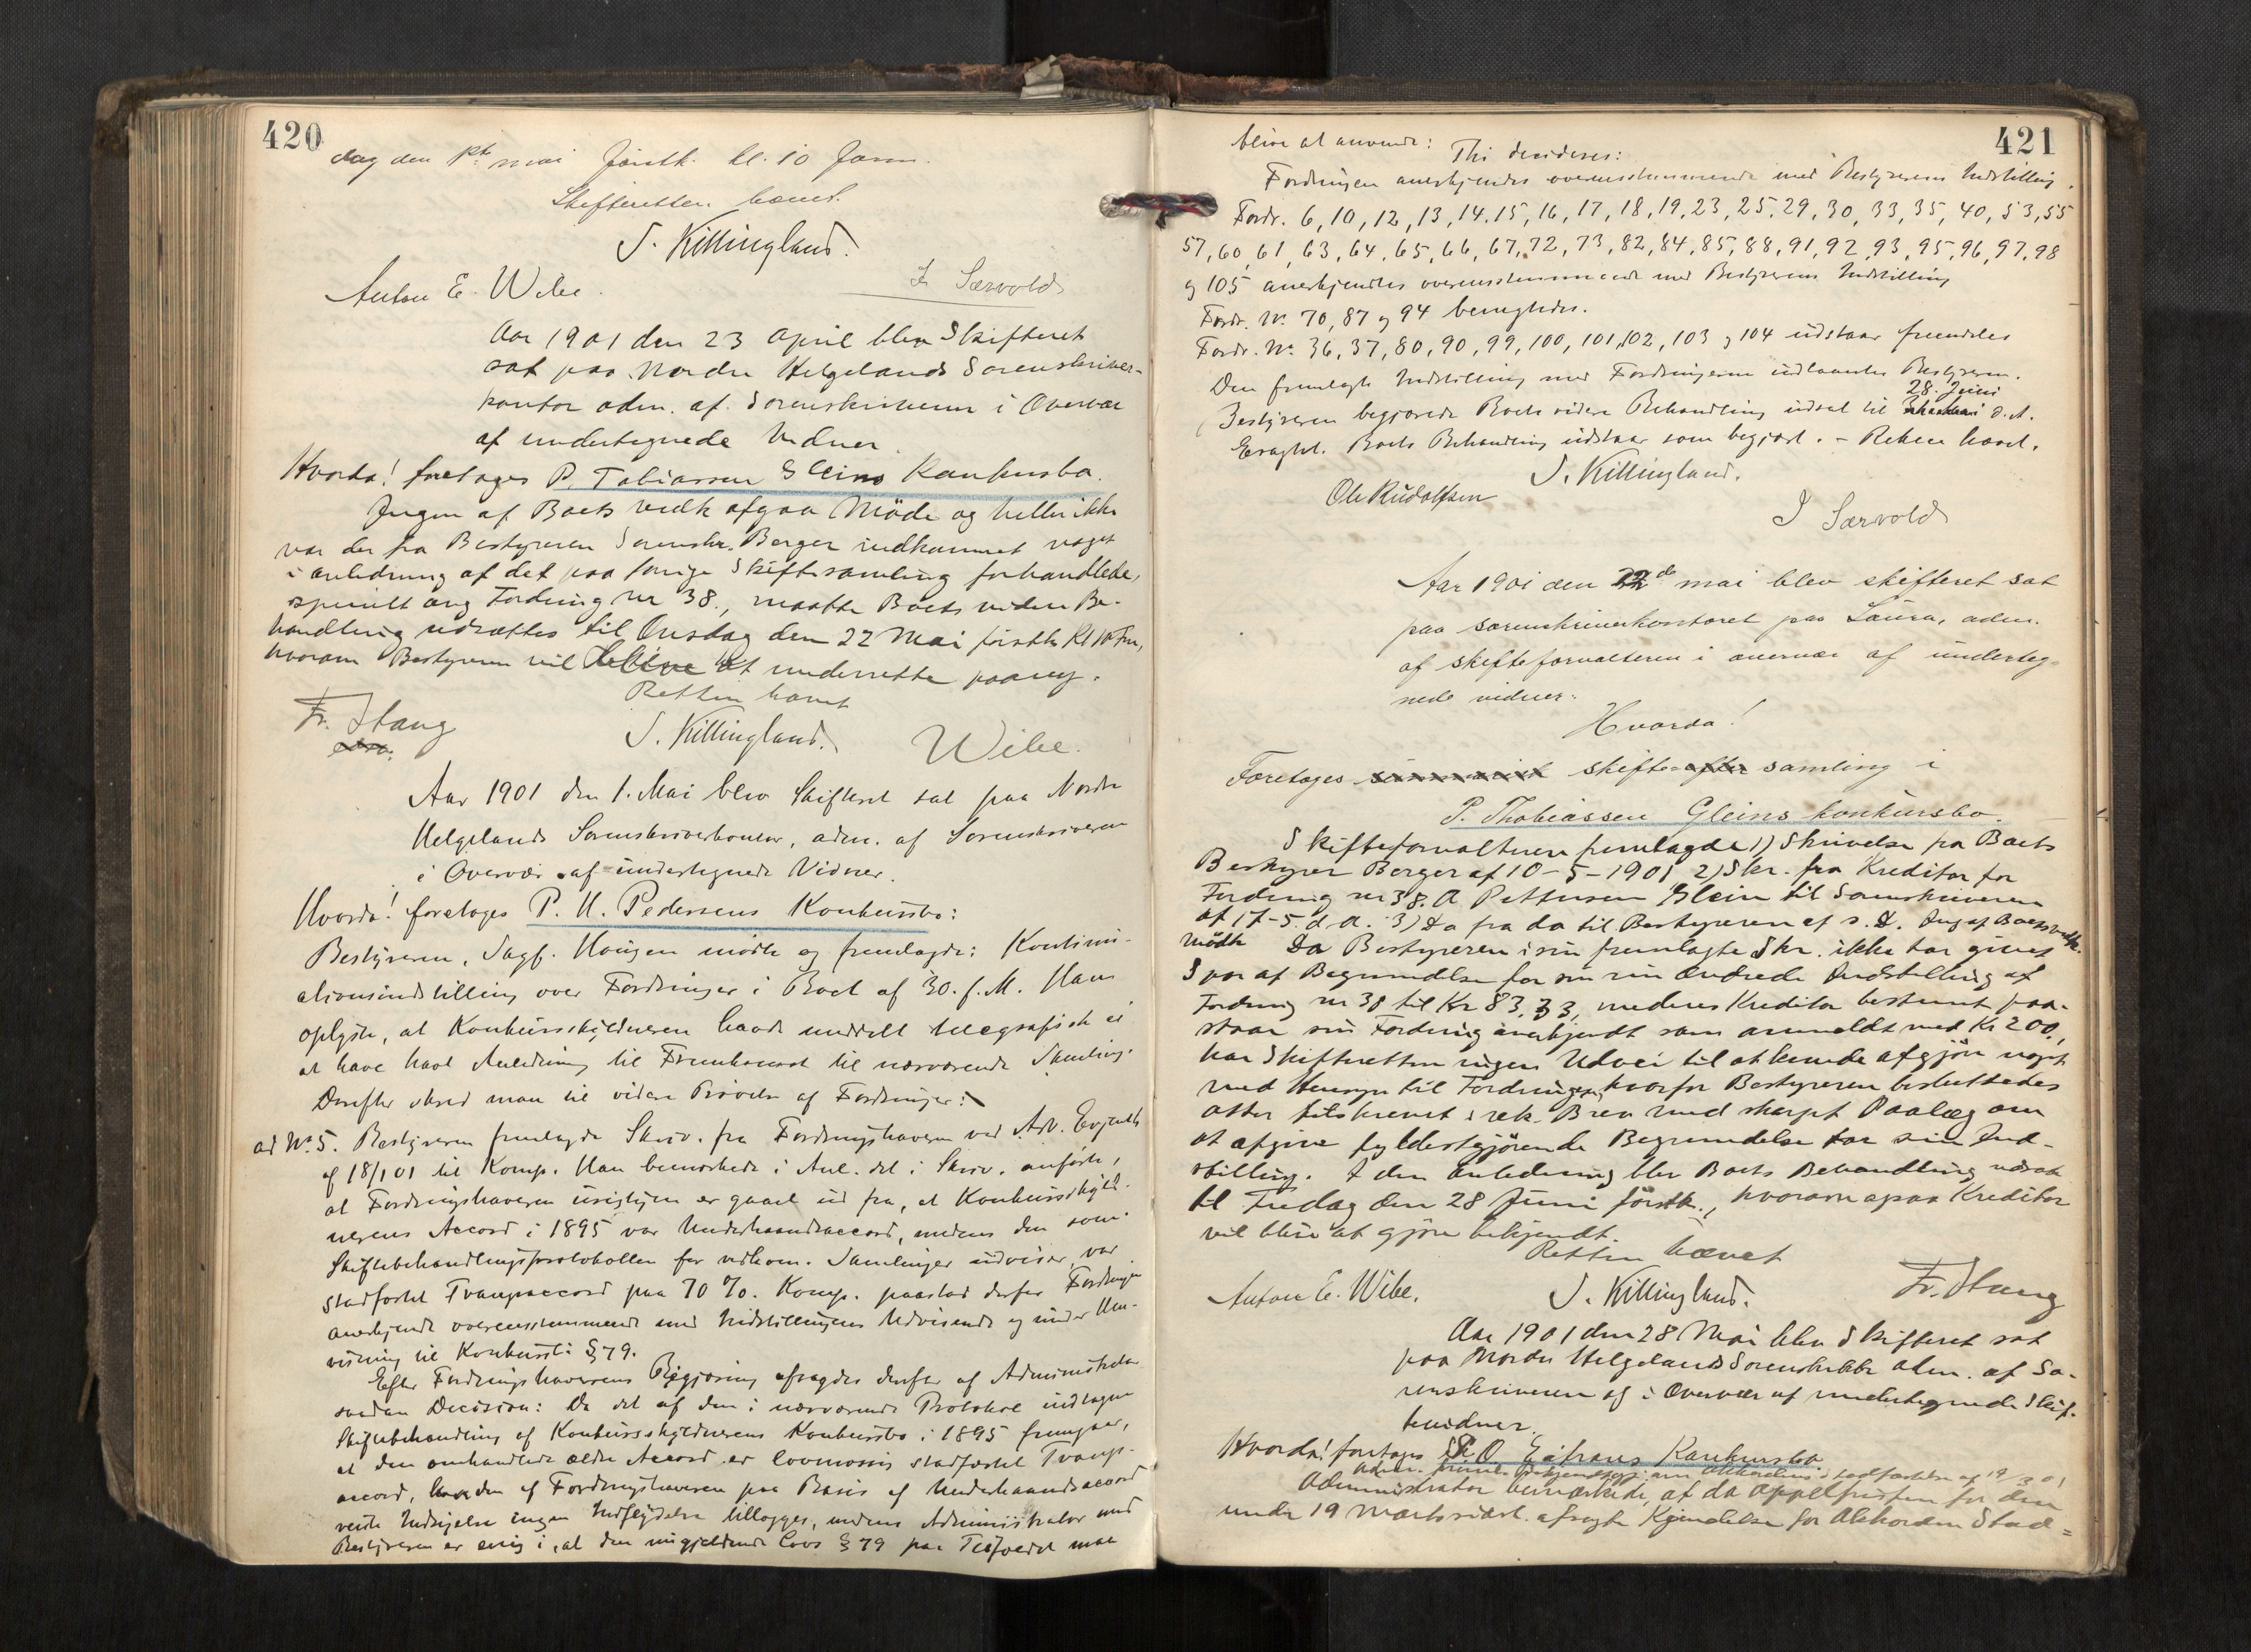 420
dag den 1ste mai førstk. kl. 10 Form.
Skifteretten hævet.
S. Killingland.
Anton E. Wibe.
I. Særvold
Aar 1901 den 23 April blev Skifteret
sat paa Nordre Helgelands Sorenskriver-
kontor adm. af Sorenskriveren i Overvær
af undertegnede Vidner
Hvorda! foretages P. Tobiassen Gleins Konkursbo.
Ingen af Boets vedk afgaa Möde og heller ikke
var der fra Bestyreren Sorenskr. Berger indkommet noget
i anledning af det paa forrige Skiftesamling forhandlede,
specielt ang Fordring nr 38., maatte Boets videre Be-
handling udsættes til Onsdag den 22 Mai førstk Kl 10 Fm,
hvorom Bestyreren vil blive at underrette paany.
Retten hævet
Fr. Stang
S. Killingland.
Wibe.
Aar 1901 den 1. Mai blev Skifteret sat paa Nordre
Helgelands Sorenskriverkontor, adm. af Sorenskriveren
i Overvær af undertegnede Vidner.
Hvorda! foretoges P. H. Pedersens Konkursbo:
Bestyreren, Sagf. Haugen mødte og fremlagde: Kontinu-
ationsindstilling over Fordringer i Boet af 30. f. M. Han
oplyste, at Konkursskyldneren havde meddelt telegrafisk ei
at have havt Anledning til Fremkomst til nærværende Samling.
Derefter skred man til videre Prøvelse af Fordringer:
ad No 5. Bestyreren fremlagde Skriv. fra Fordringshaveren ved Adv. Evjenth
af 18/1 01 til Komp. Han bemærkede i Anl. det i Skriv. anførte,
at Fordringshaveren urigtigen er gaaet ud fra, at Konkursskyld-
nerens Accord i 1895 var Underhaandsaccord, medens den som
Skiftebehandlingsprotokollen for vedkom. Samlinger udviser, var
stadfæstet Tvangsaccord paa 70 %. Komp. paastod derfor Fordringen
anerkjendt overensstemmende med Indstillingens Udvisende og under Hen-
visning til Konkursl: § 79.
Efter Fordringshaverens Begjæring afsagdes derefter af Administrator
saadan Decision: Da det af den i nærværende Protokol indtagne
Skiftebehandling af Konkursskyldnerens Konkursbo i 1895 fremgaar,
at den omhandlede ældre Accord er lovmæssig stadfæstet Tvangs-
accord, kan den af Fordringshaveren paa Basis af Underhaandsaccord
reiste Indsigelse ingen Indflydelse tillægges, medens Administrator med
Bestyreren er enig i, at den nugjeldende Lovs § 79 paa Tilfældet maa
421
blive at anvende: Thi decideres:
Fordringen anerkjendes overensstemmende med Bestyrerens Indstilling.
Fordr. 6, 10, 12, 13, 14. 15, 16, 17, 18, 19, 23, 25, 29, 30, 33, 35, 40, 53, 55
57, 60, 61, 63, 64, 65, 66, 67, 72, 73, 82, 84, 85, 88, 91, 92, 93, 95, 96, 97, 98
og 105 anerkjendtes overensstemmende med Bestyrerens Indstilling
Fordr. No. 70, 87 og 94 benegtedes.
Fordr. No. 36, 37, 80, 90, 99, 100, 101, 102, 103 og 104 udstaar fremdeles
Den fremlagte Indstilling med Fordringerne udlaantes Bestyreren.
28. Juni
Bestyreren begjærede Boets videre Behandling udsat til d. A.
Eragtet. Boets Behandling udstaar som begjært. - Retten hævet.
S. Killingland.
Ole Rudolfsen
I Særvold
Aar 1901 den 22de mai blev skifteret sat
paa sorenskriverkontoret paa Laura, adm.
af skifteforvalteren i overvær af underteg-
nede vidner:
Hvorda!
Foretoges skifte samling i
P. Thobiassen Gleins konkursbo.
Skifteforvalteren fremlagde 1) Skrivelse fra Boets
Bestyrer Berger af 10-5-1901 2) Skr. fra Kreditor for
Fordring nr 38. A Pettersen Glein til Sorenskriveren
af 17-5. d. A. 3) Do fra do til Bestyreren af s. D. Ing af Boets vedk.
mødte Da Bestyreren i sin fremlagte Skr. ikke har givet
Spor af Begrundelse for sin ændrede Indstilling af
Fordring nr 38 til Kr 83,33, medens Kreditor bestemt paa-
staar sin Fordring anerkjendt som anmeldt med Kr 200,
har Skifteretten ingen Udvei til at kunde afgjøre noget
med Hensyn til Fordringen, hvorfor Bestyreren besluttedes
atter tilskrevet i rek. Brev med skarpt Paalæg om
at afgive fyldestgjörende Begrundelse for sin Ind-
stilling. I den Anledning blev Boets Behandling udsat
til Fredag den 28 Juni förstk., hvorom ogsaa Kreditor
vil blive at gjöre bekjendt.
Retten hævet
Anton E. Wibe.
S. Killingland.
Fr. Stang
Aar 1901 den 28 Mai blev Skifteret sat
paa Nordre Helgelands Sorenskrktr adm. af So-
renskriveren og i Overvær af undertegnede Skif-
tevidner.
Hvorda! foretages O. Konkursbo
Adm. fremlagde om Akkordens stadfæstelse af 19/3 01
Administrator bemærkede, at da Appelfristen for den
under 19 Marts sidstl. afsagte Kjendelse for Akkordens Stad=